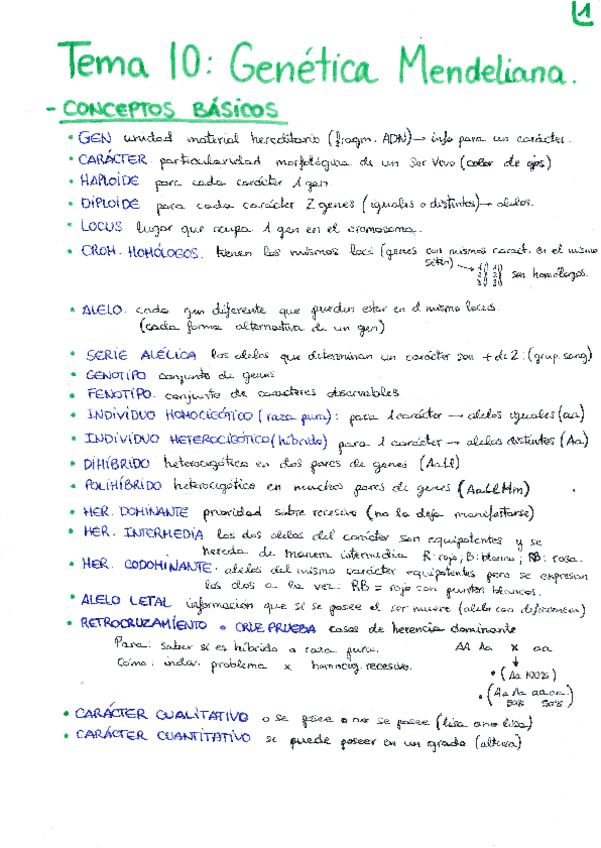 1
Tema 10: Genética Mendeliana.
- CONCEPTOS BÁSICOS
• GEN unidad material hereditario (fragm. ADN) → info para un carácter.
• CARÁCTER. particularidad morfológica de un Ser Vivo (color de ojos)
• HAPLOIDE para cada carácter 1 gen.
• DIPLOIDE para cada carácter 2 genes (iguales o distintos) → alelos.
• LOCUS lugar que ocupa 1 gen en el cromosoma.
• CROM. HOMÓLOGOS. tienen los mismos loci (genes con mismos caract. en el mismo
sitio) son homólogos.
• ALELO. cada gen diferente que pueden estar en el mismo locus.
(cada forma alternativa de un gen)
• SERIE ALÉLICA los alelos que determinan un carácter son + de 2: (grup. sang)
• GENOTIPO conjunto de genes
• FENOTIPO. conjunto de caracteres observables
• INDIVIDUO HOMOCIGÓTICO (raza pura): para 1 carácter → alelos iguales (aa)
• INDIVIDUO HETEROCIGÓTICO (híbrido) para 1 carácter → alelos distintos (Aa)
• DIHÍBRIDO heterocigótico en dos pares de genes (AaLl)
• POLIHÍBRIDO heterocigótico en muchos pares de genes (AaLlMm)
• HER. DOMINANTE prioridad sobre recesivo (no lo deja manifestarse)
• HER. INTERMEDIA los dos alelos del carácter son equipotentes y se
hereda de manera intermedia R: rojo; B: blanco; RB: rosa.
• HER. CODOMINANTE. alelos del mismo carácter equipotentes pero se expresan
los dos a la vez: RB = rojo con puntos blancos.
• ALELO LETAL información que si se posee el ser muere (alelo con deficiencia)
• RETROCRUZAMIENTO o CRUE PRUEBA casos de herencia dominante
Para: saber si es híbrido o raza pura. AA Aa x aa
Cómo: indiv. problema x homocig. recesivo. • (Aa 100%)
• (Aa Aa aa aa)
50% 50%
• CARÁCTER CUALITATIVO o se posee o no se posee (lisa o no lisa)
• CARÁCTER CUANTITATIVO se puede poseer en un grado (altura)